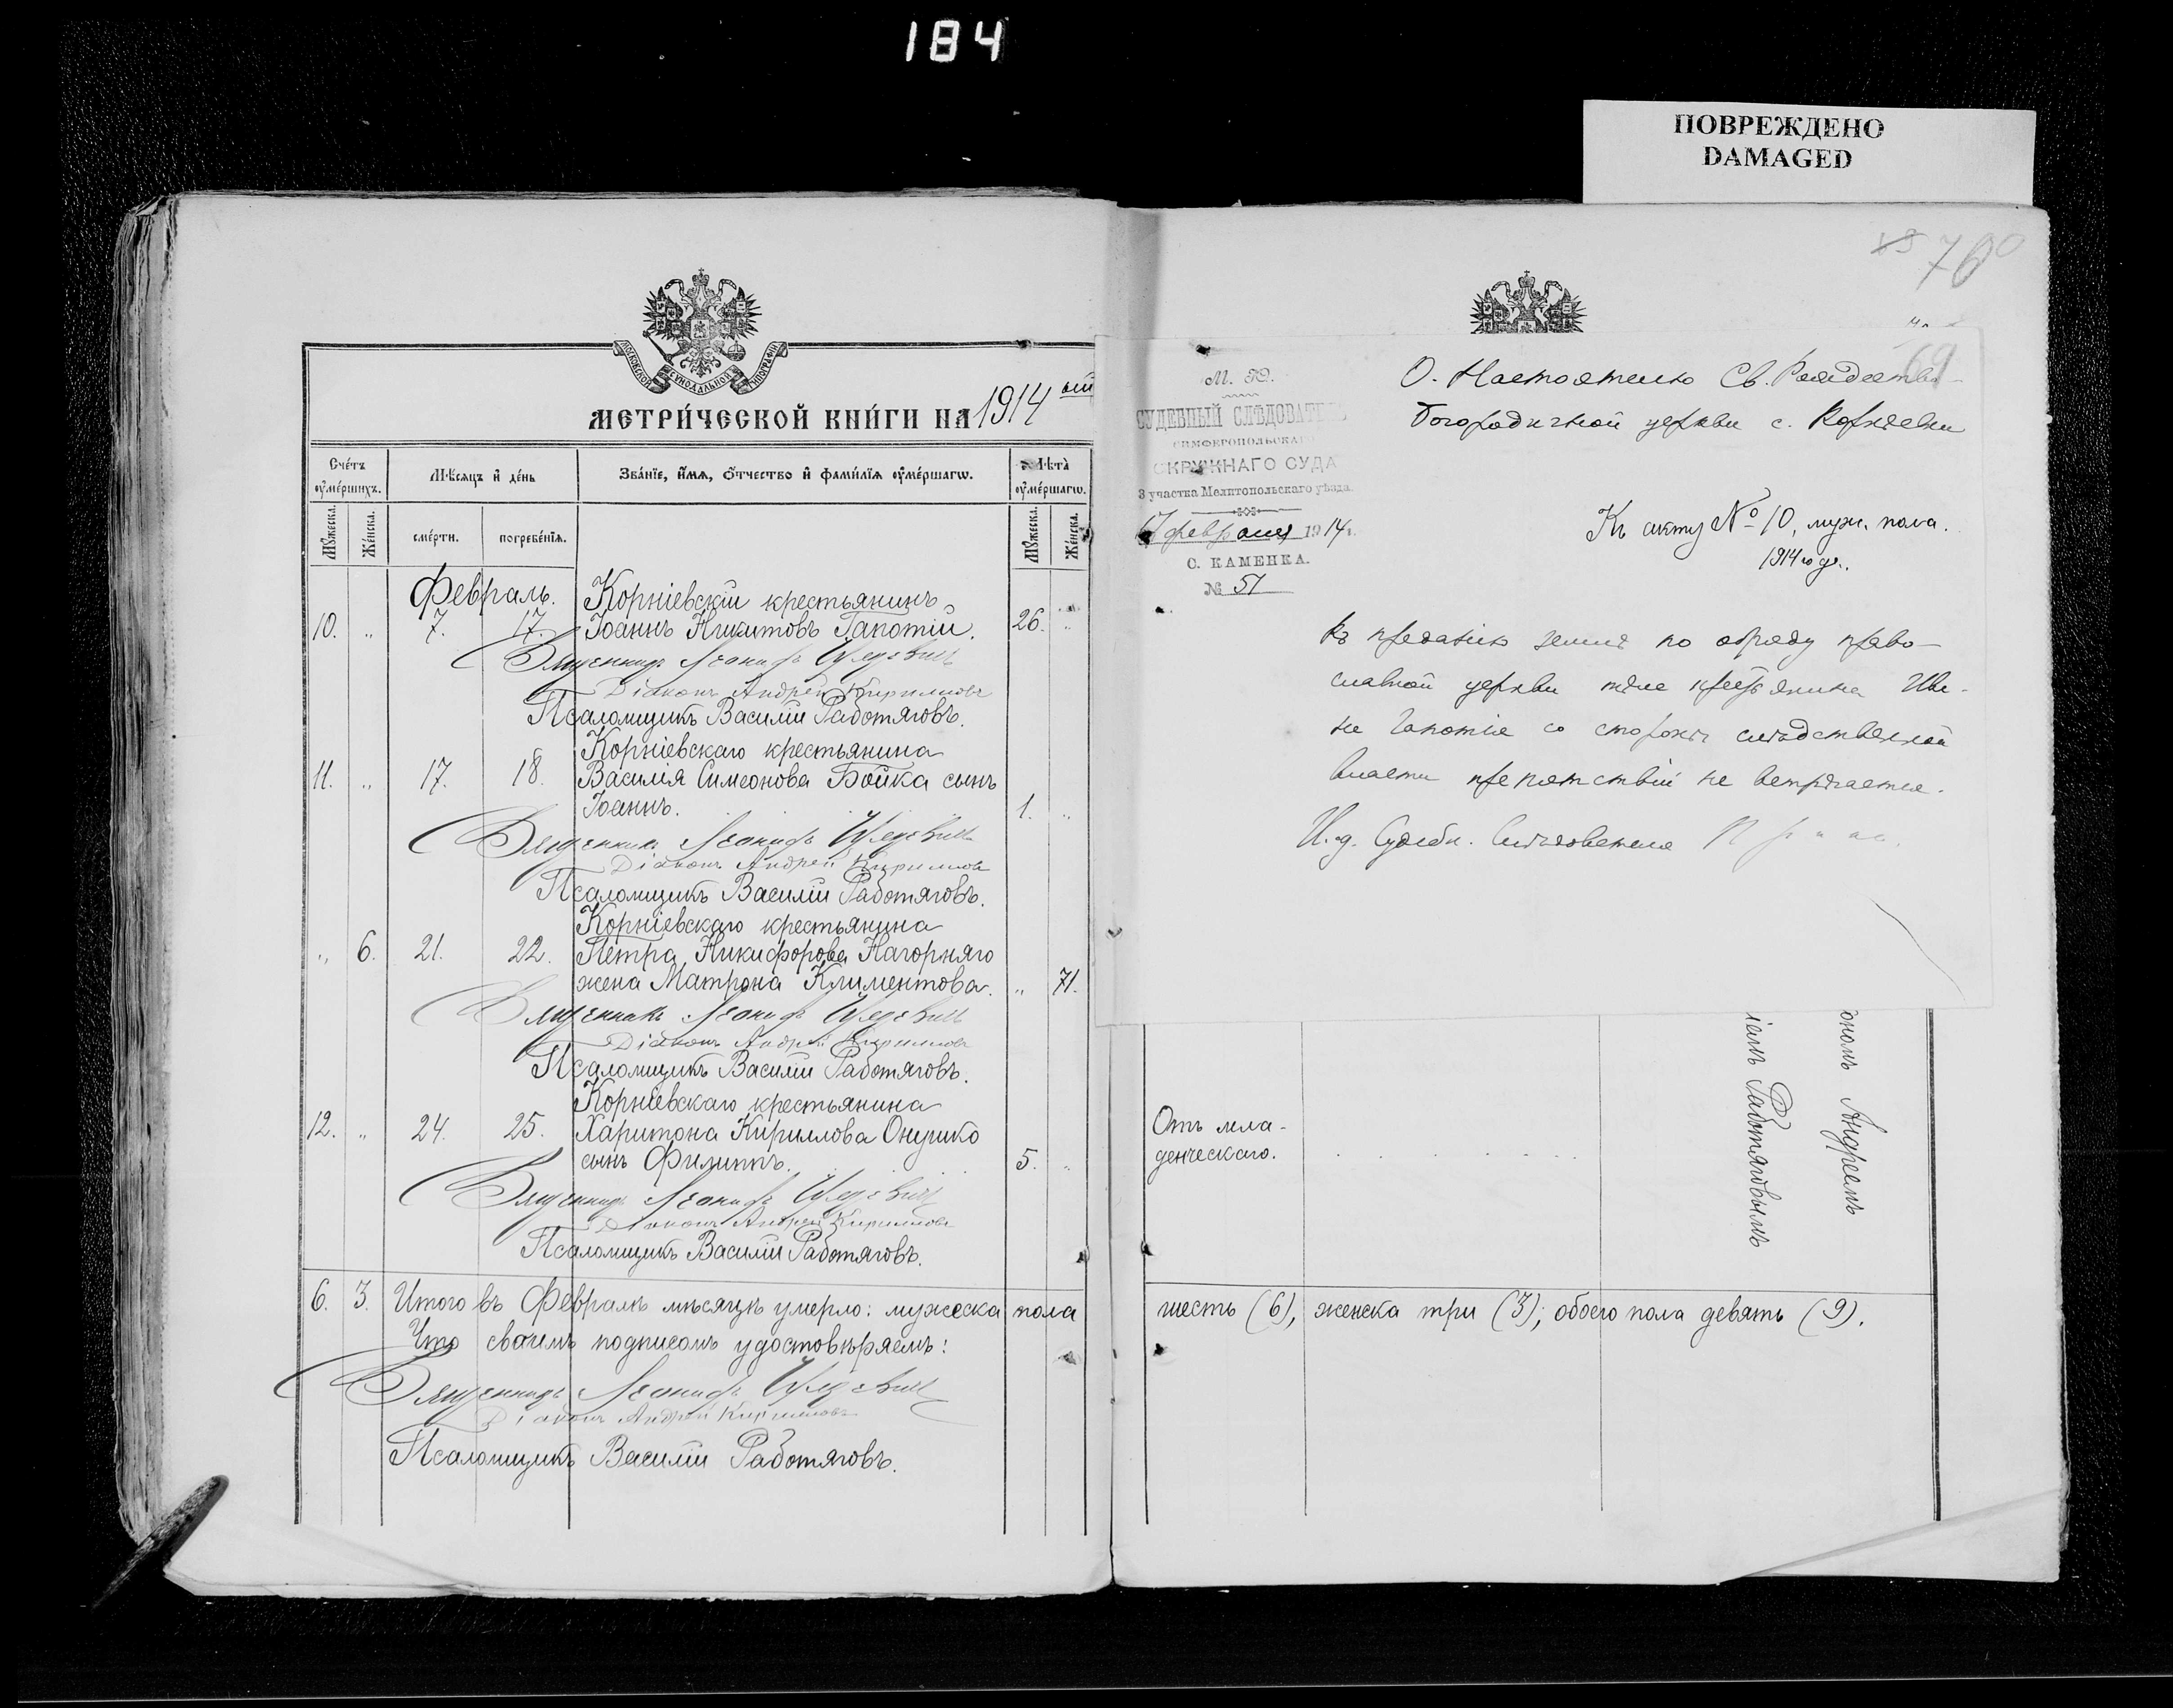 184
ПОВРЕЖДЕНО
DAMAGED
МОСКОВСКОЙ СѴНОДАЛЬНОЙ ТИПОГРАФІИ
МЕТРИ́ЧЕСКОЙ КНИ́ГИ НА 1914 ый
Сче́тъ ᲂу҆ме́ршихъ.
Мѣ́сяцъ и҆ де́нь
Зва́нїе, и҆́мѧ, ѻ҆́тчество и҆ фами́лїѧ ᲂу҆ме́ршагѡ.
Лѣ̑та̀ ᲂу҆ме́ршагѡ.
Мꙋ́жеска.
Же́нска.
сме́рти.
погребе́нїѧ.
Мꙋ́жеска.
Же́нска.
Февраль.
Корніевскій крестьянинъ
10. „ 7. 17. Іоаннъ Никитовъ Гапотій. 26. „
Священникъ Леонидъ
Діаконъ Андрей Кирилловъ
Псаломщикъ Василій Работяговъ.
Корніевскаго крестьянина
11. „ 17. 18. Василія Симеонова Бойка сынъ
Іоаннъ. 1. „
Священникъ Леонидъ
Діаконъ Андрей Кирилловъ
Псаломщикъ Василій Работяговъ.
Корніевскаго крестьянина
„ 6. 21. 22. Петра Никифорова Нагорняго
жена Матрона Климентова. „ 71.
Священникъ Леонидъ
Діаконъ Андрей Кирилловъ
Псаломщикъ Василій Работяговъ.
Корніевскаго крестьянина
12. „ 24. 25. Харитона Кириллова Онушко
сынъ Филиппъ. 5. „
Священникъ Леонидъ
Діаконъ Андрей Кирилловъ
Псаломщикъ Василій Работяговъ.
6. 3. Итого въ Февралѣ мѣсяцѣ умерло: мужеска пола
Что своимъ подписомъ удостовѣряемъ:
Священникъ Леонидъ
Діаконъ Андрей Кирилловъ
Псаломщикъ Василій Работяговъ.
70
69
М. Ю.
СУДЕБНЫЙ СЛѢДОВАТЕЛЬ
СИМФЕРОПОЛЬСКАГО
ОКРУЖНАГО СУДА
3 участка Мелитопольскаго уѣзда.
17 февраля 1914 г.
С. КАМЕНКА.
№ 51
О. Настоятелю Св. Рождество-
Богородичной церкви с. Корніевки
Къ акту № 10, муж. пола.
1914 года.
Къ преданію землѣ по обряду право-
славной церкви тѣла крестьянина Ива-
на Гапотія со стороны слѣдственной
власти препятствій не встрѣчается.
И. д. Судебн. Слѣдователя
Отъ мла-
денческаго.
іемъ Работяговымъ
ономъ Андреемъ
шесть (6), женска три (3); обоего пола девять (9).